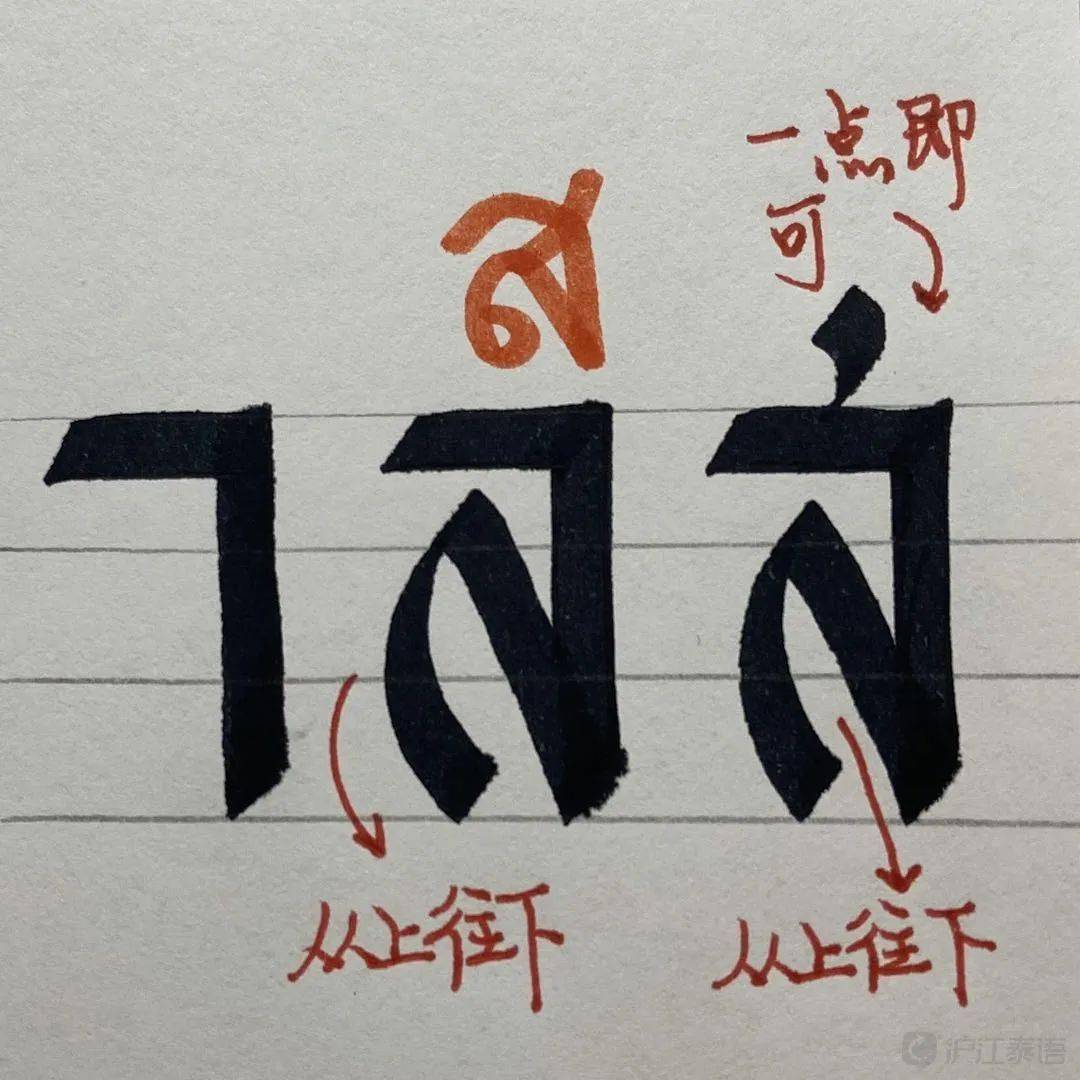 一点即
可
ส
า ล ส
从上往下 从上往下
沪江泰语